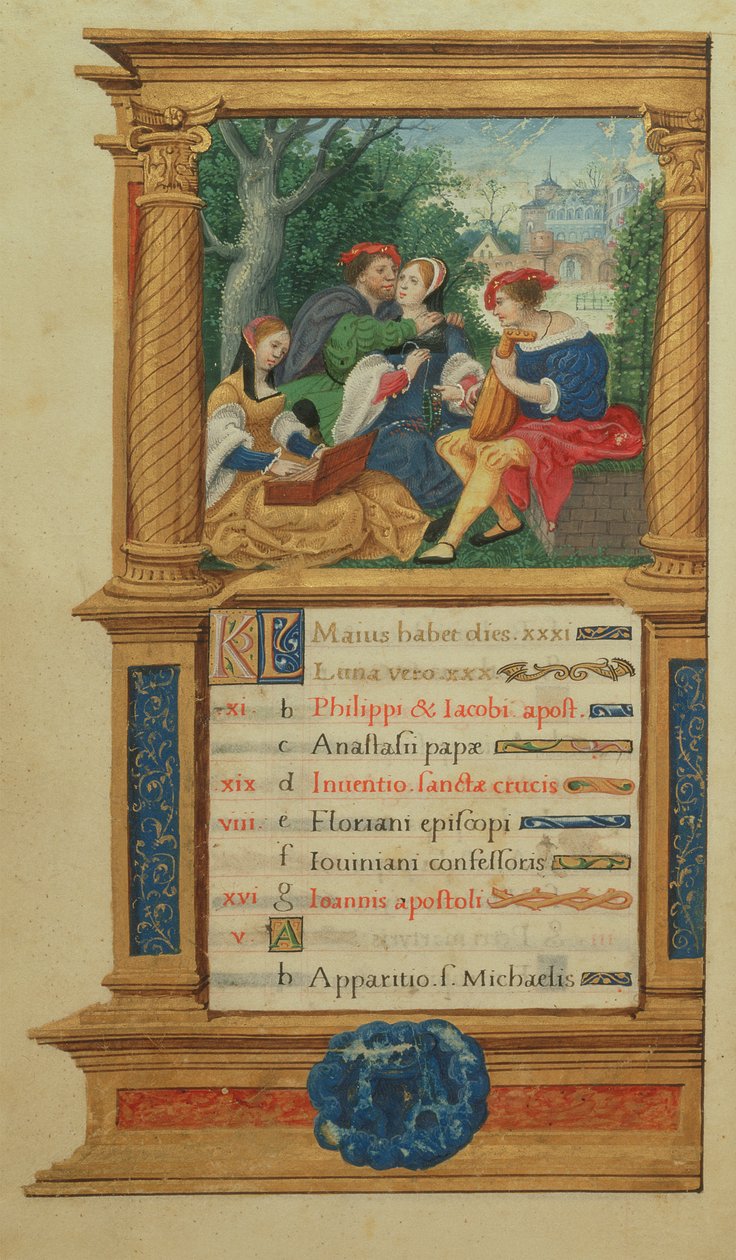 KL Maius habet dies. xxxi
Luna vero. xxx
xi b Philippi & Iacobi apost.
c Anastasii papæ
xix d Inuentio. sanctæ crucis
viii. e Floriani episcopi
f Iouiniani confessoris
xvi g Ioannis apostoli
v A
b Apparitio. s. Michaelis